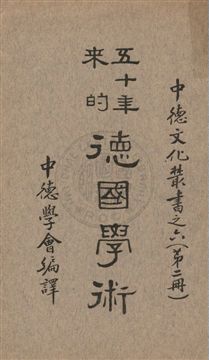 中德文化叢書之六(第二冊)
五十年
来的
德國學術
中德學會編譯